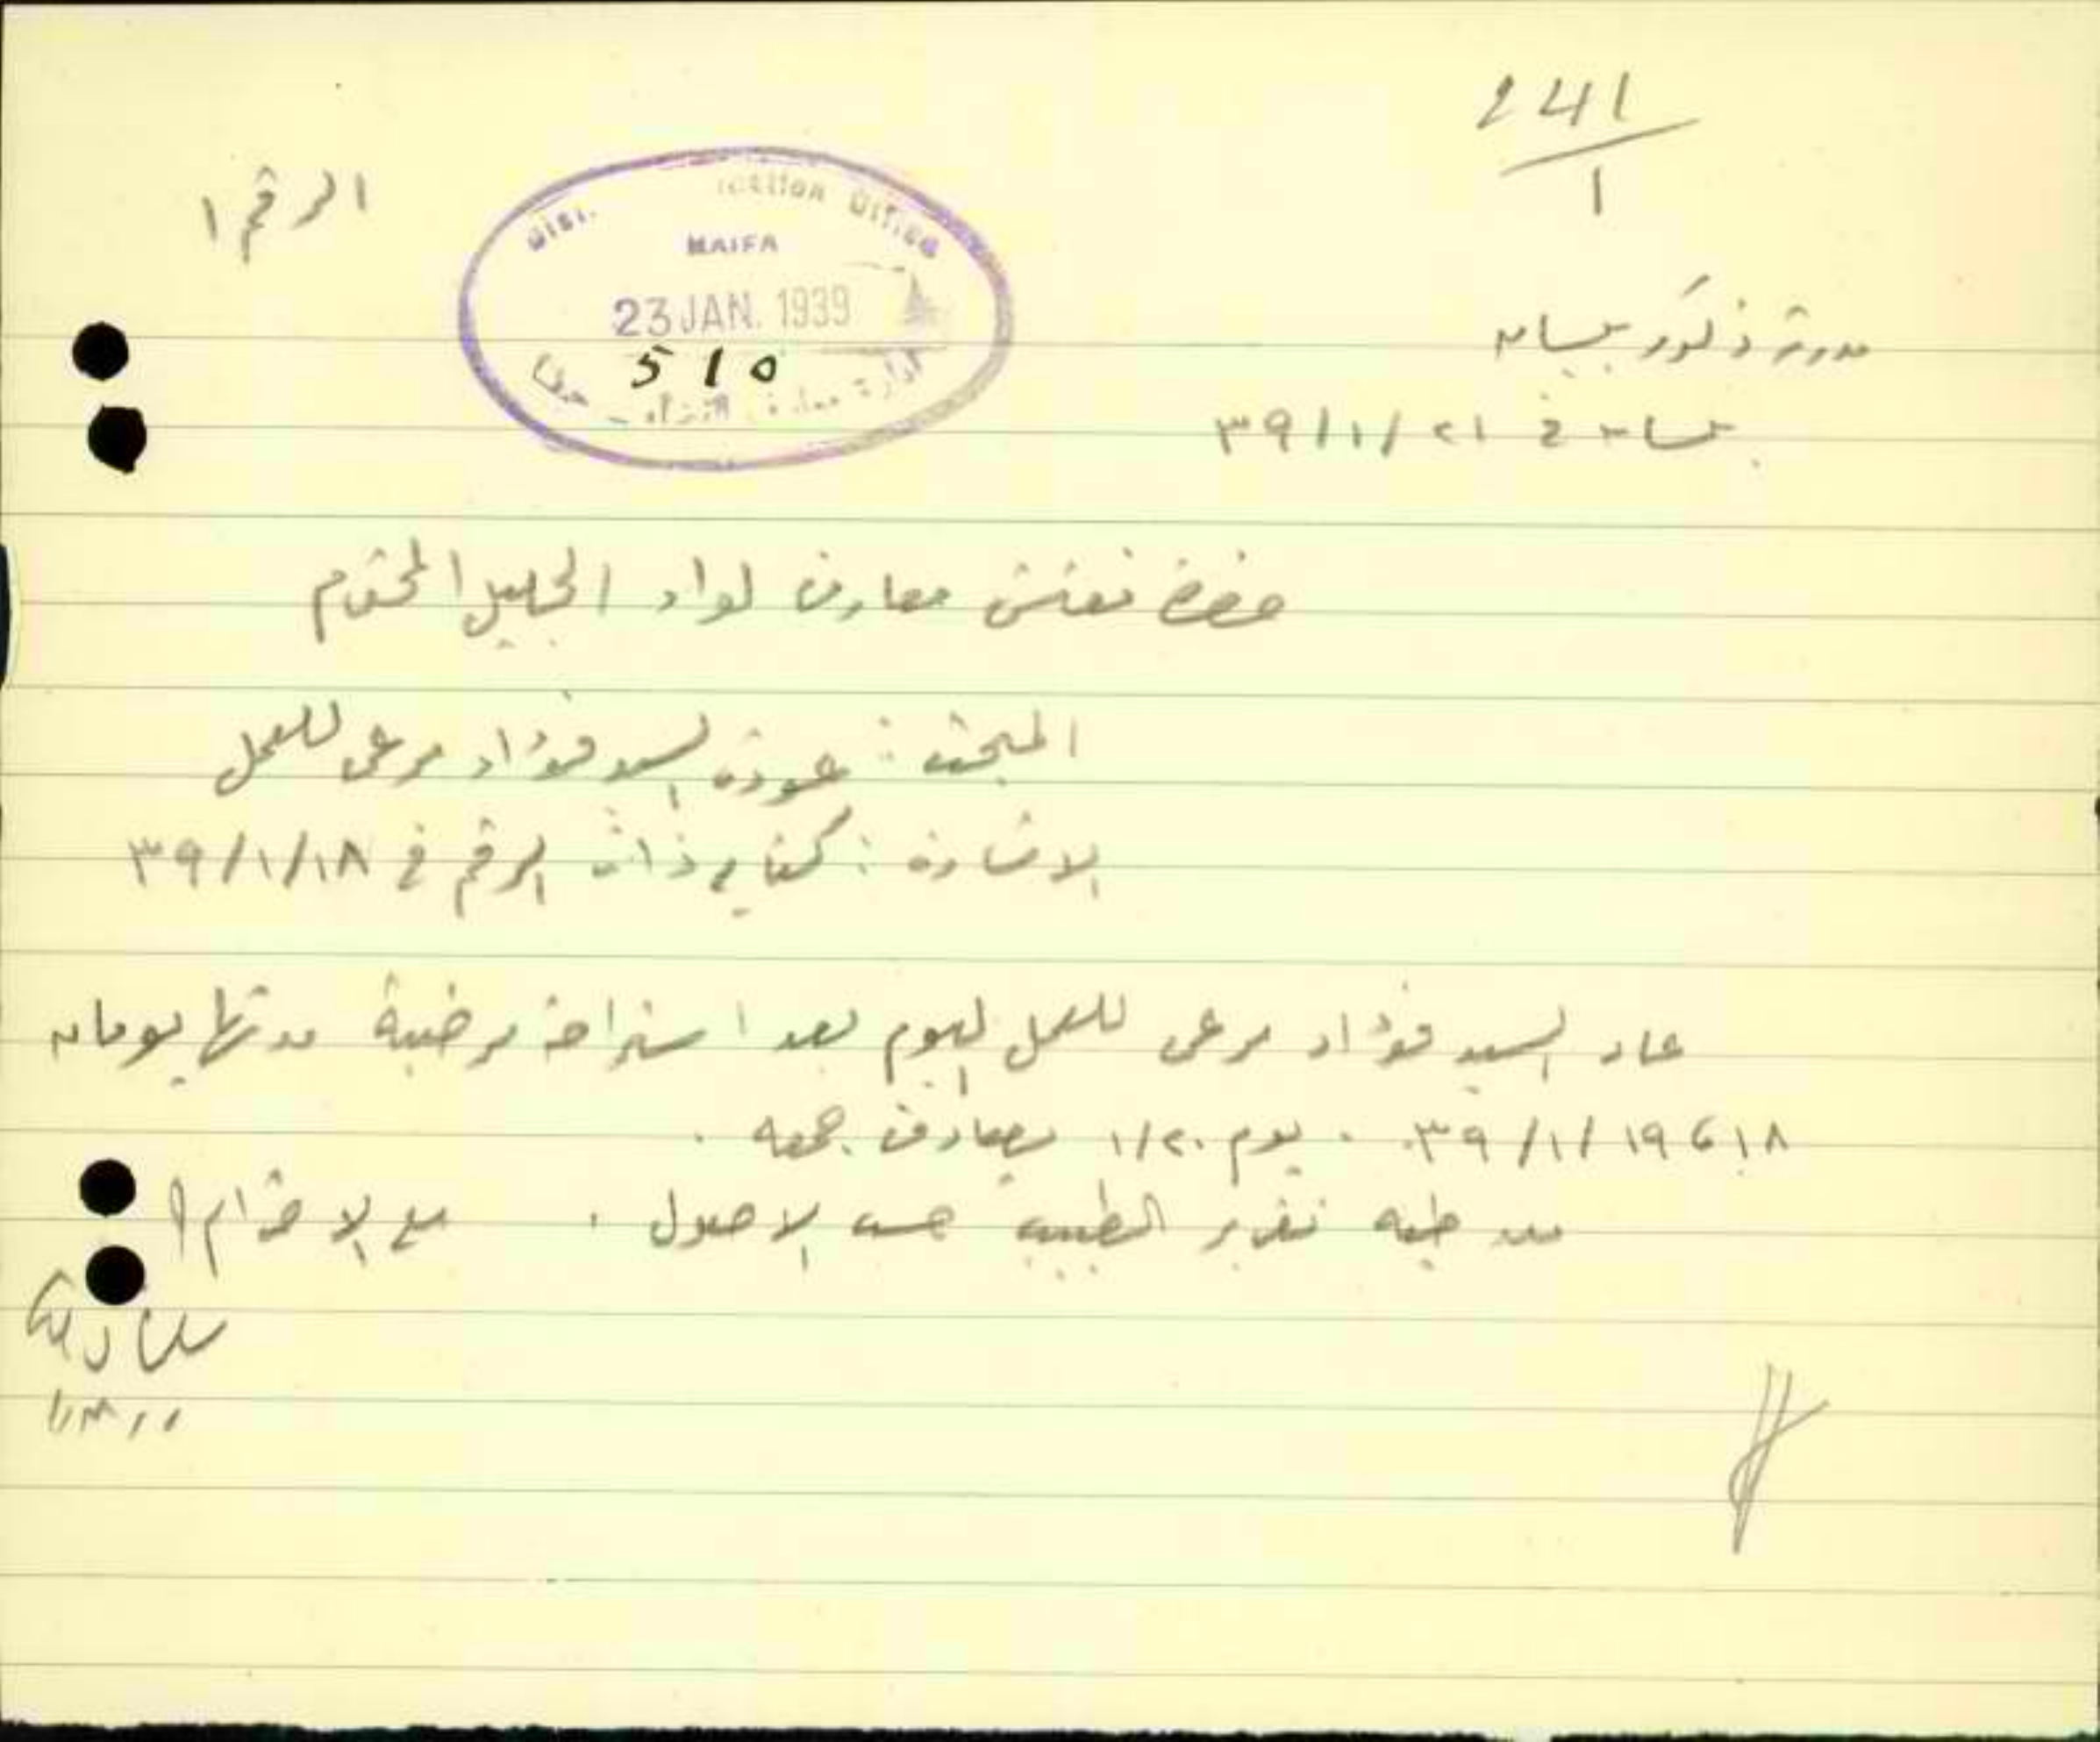 241
1
الرقم ١
HAIFA
23 JAN. 1939
510
مدرسة ذكور بيسان
بيسان في ٢١/١/٣٩
حضرة مفتش معارف لواء الجليل المحترم
المبحث : عودة السيد فؤاد مرعي للعمل
الاشارة : كتابي ذات الرقم في ١٨/١/٣٩
عاد السيد فؤاد مرعي للعمل اليوم بعد استراحة مرضية مدتها يومان
١٨ ، ١٩/١/٣٩ . يوم ١/٢٠ يصادف جمعه .
من طيه تقرير الطبيب حسب الاصول . مع الاحترام